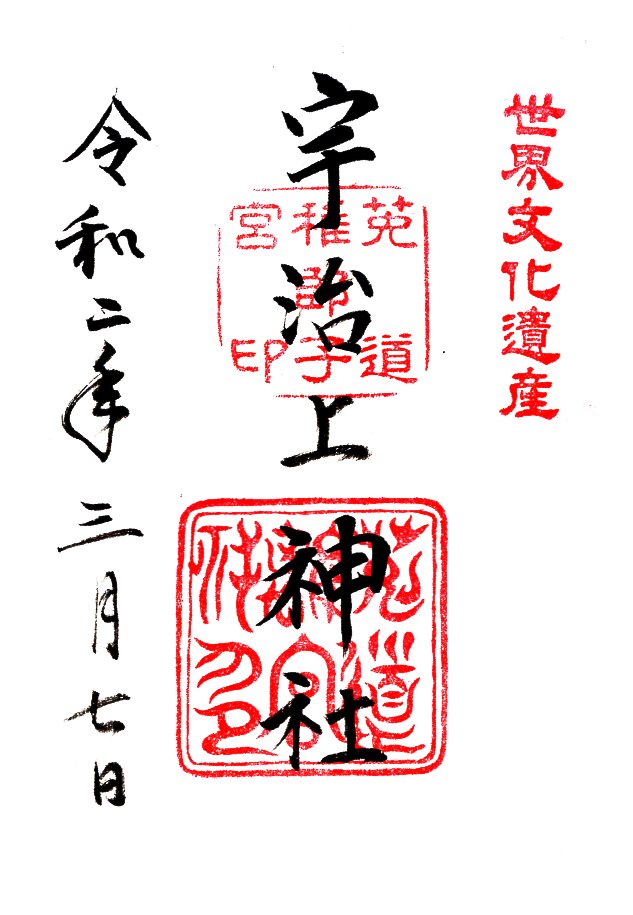 世界文化遺産
宇治上神社
菟道
稚郎子
宮印
令和二年三月七日